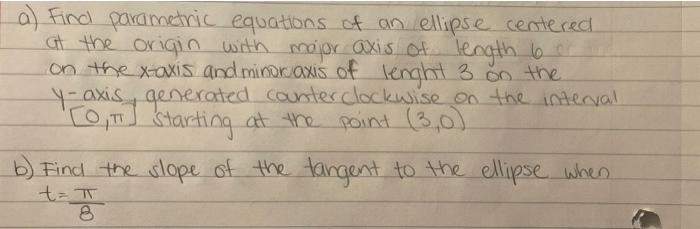 a) Find parametric equations of an ellipse centered
at the origin with major axis of length 6
on the x-axis and minor axis of lenght 3 on the
y-axis, generated counterclockwise on the interval
[0,π] starting at the point (3,0)
b) Find the slope of the tangent to the ellipse when
t = π/8